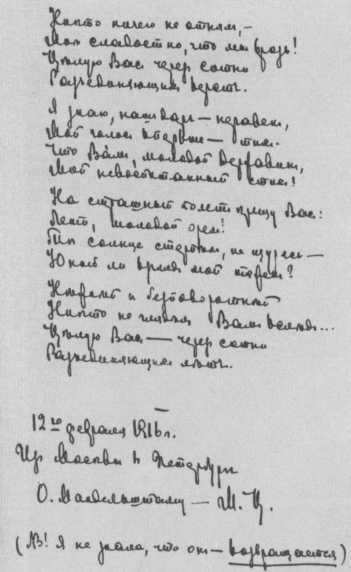 Никто ничего не отнял,—
Мне сладостно, что мы врозь!
Целую Вас через сотни
Разъединяющих верст.
Я знаю, наш дар — неравен,
Мой голос впервые — тих.
Что Вам, молодой Державин,
Мой невоспитанный стих!
На страшный полет крещу Вас:
Лети, молодой орел!
Ты солнце стерпел, не щурясь —
Юный ли взгляд мой тяжел?
Нежней и бесповоротней
Никто не глядел Вам вслед...
Целую Вас — через сотни
Разъединяющих лет.
12го февраля 1916 г.
Из Москвы в Петербург
О. Мандельштаму — М. Ц.
(NB! Я не знала, что он — возвращается)